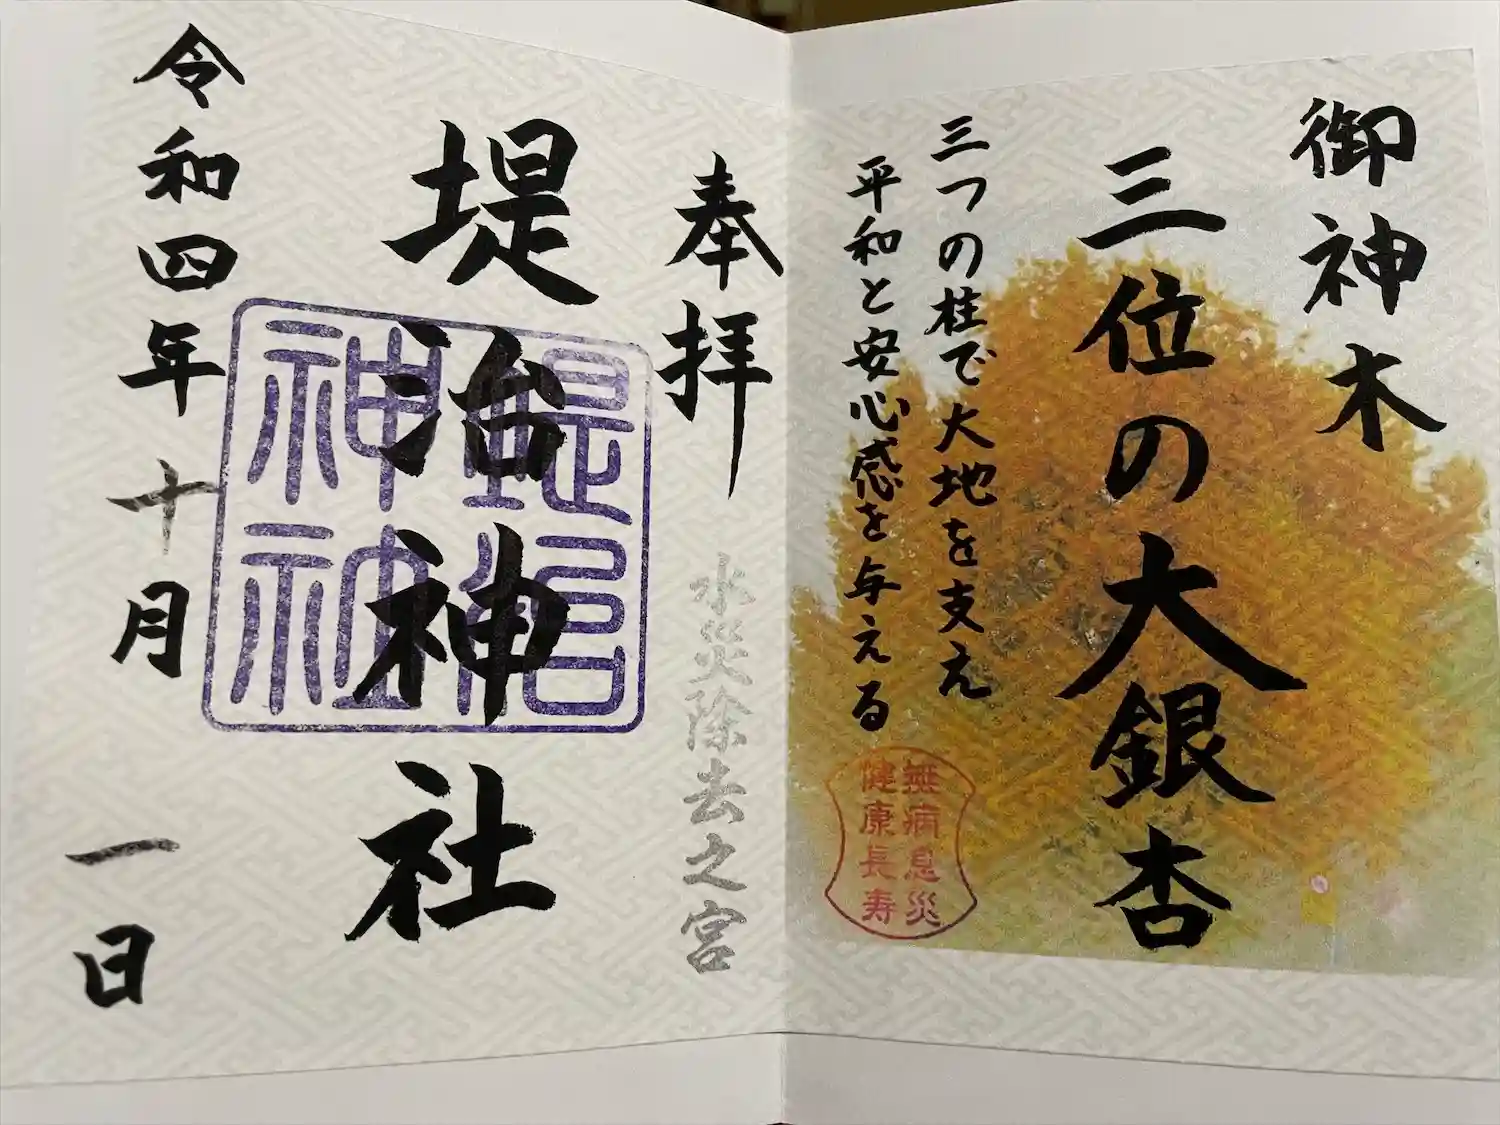 御神木
三位の大銀杏
三つの柱で大地を支え
平和と安心感を与える
無病息災
健康長寿
奉拝
水災除去之宮
堤治神社
堤治
神社
令和四年十月一日